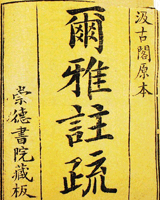 汲古閣原本
爾雅註疏
崇德書院藏板